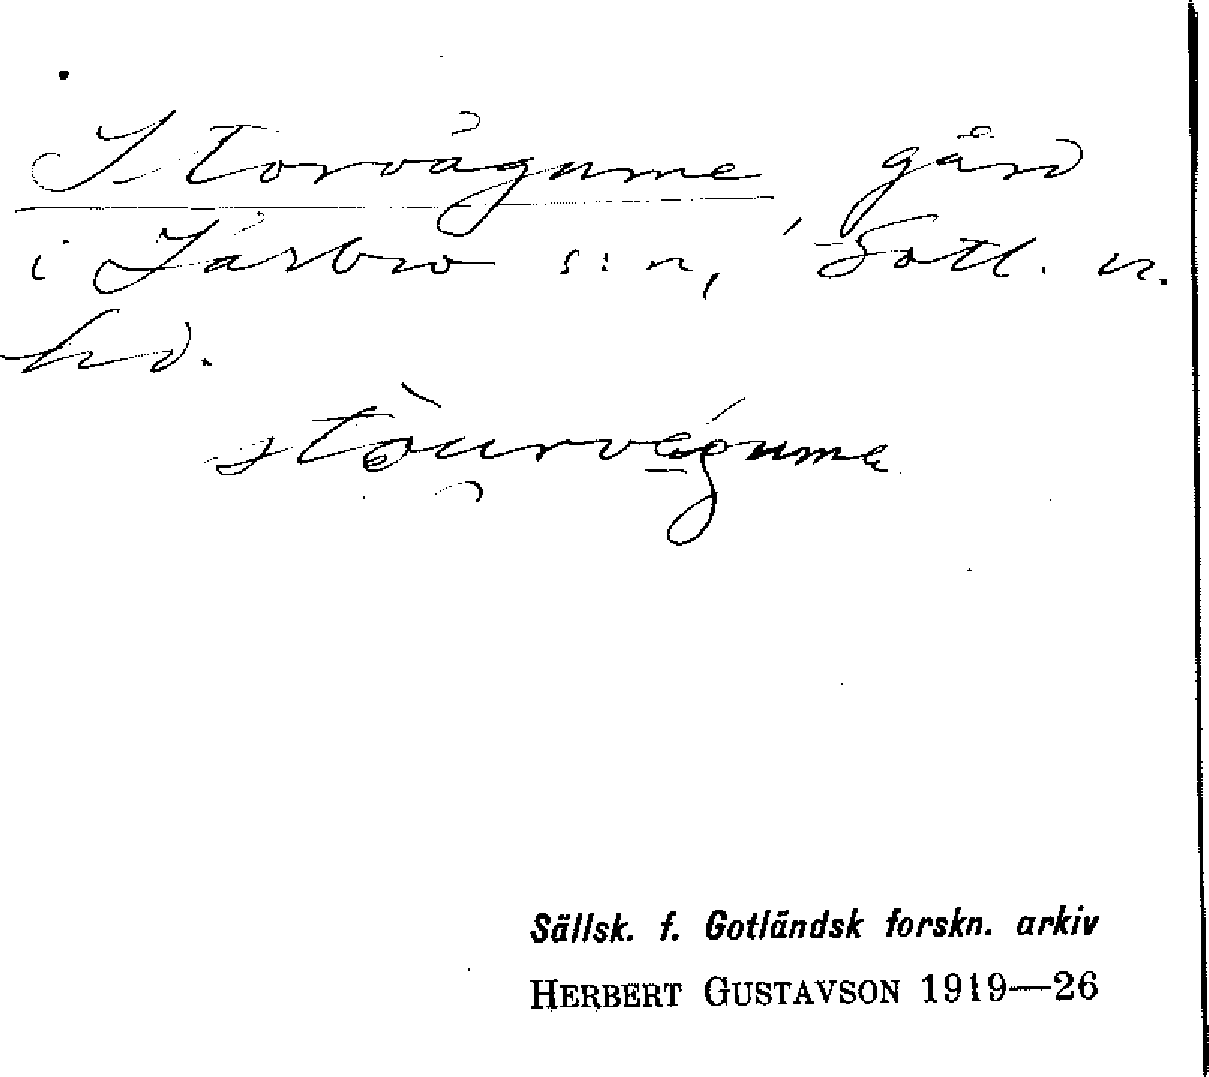 Storvägume, gård
i Lärbro s:n, Gotl. n.
hd.
Sällsk. f. Gotländsk forskn. arkiv
HERBERT GUSTAVSON 1919—26